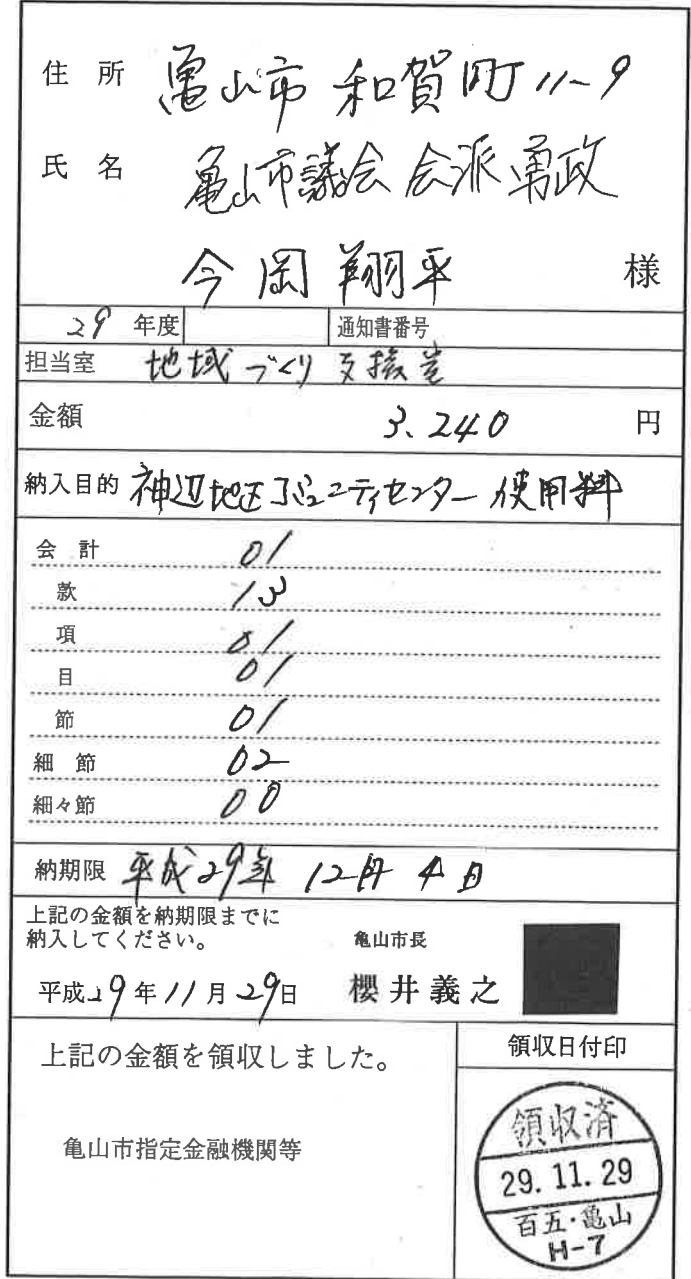 住所 亀山市和賀町11-9
氏名 亀山市議会 会派勇政
今岡翔平 様
29年度 通知書番号
担当室 地域づくり支援室
金額 3,240 円
納入目的 神辺地区コミュニティセンター 使用料
会計 01
款 13
項 01
目 01
節 01
細節 02
細々節 00
納期限 平成29年 12月 4日
上記の金額を納期限までに
納入してください。
亀山市長
平成29年11月29日 櫻井義之
上記の金額を領収しました。
領収日付印
亀山市指定金融機関等
領収済
29.11.29
百五・亀山
H-7